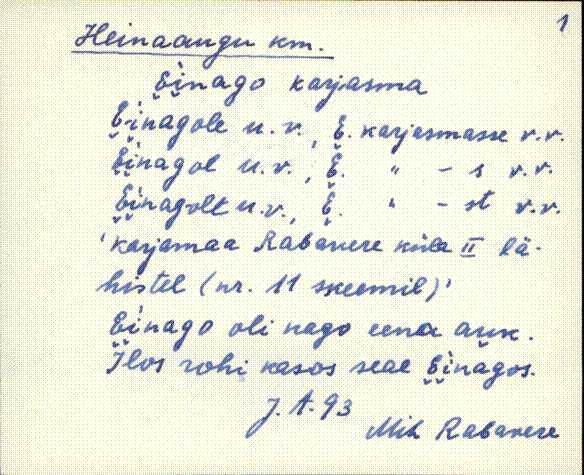 1
Heinaaugu km.
Einago karjasma
Einagole u. v., E. karjasmasse v. v.
Einagol u. v., E. " - s v. v.
Einagolt u. v., E. " - st v. v.
'karjamaa Rabavere küla II lä-
histel (nr. 11 skeemil)'
Einago oli nago eena auk.
Ilos rohi kasos seal Einagos.
J. A. 93
Mih Rabavere